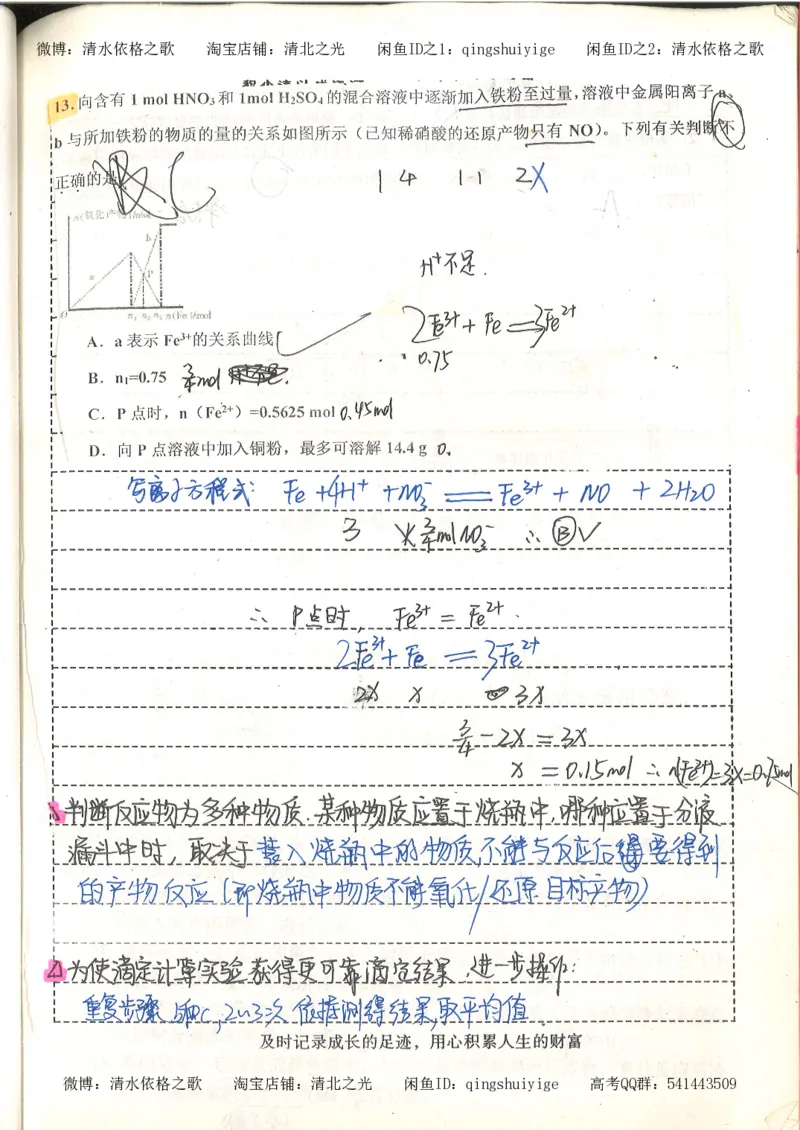 微博：清水依格之歌 淘宝店铺：清北之光 闲鱼ID之1：qingshuiyige 闲鱼ID之2：清水依格之歌
13.向含有 1 mol HNO₃ 和 1mol H₂SO₄ 的混合溶液中逐渐加入铁粉至过量,溶液中金属阳离子 a、
b 与所加铁粉的物质的量的关系如图所示（已知稀硝酸的还原产物只有 NO）。下列有关判断不
正确的是
C
1 4 1 1 2
b
a
P
0 n₁ n₂ n₃ n(Fe)/mol
H⁺不足.
2Fe³⁺ + Fe = 3Fe²⁺
0.75
A．a 表示 Fe³⁺的关系曲线
B．n₁=0.75 3/4 mol
C．P 点时，n（Fe²⁺）=0.5625 mol 0.45mol
D．向 P 点溶液中加入铜粉，最多可溶解 14.4 g
写离子方程式: Fe +4H⁺ +NO₃⁻ = Fe³⁺ + NO + 2H₂O
3 3/4 mol NO₃⁻ ∴ Ⓑ√
∴ P点时, Fe³⁺ = Fe²⁺.
2Fe³⁺ + Fe = 3Fe²⁺
2x x 3x
3/4 - 2x = 3x
x = 0.15mol ∴ n(Fe²⁺)=3x=
判断反应物为多种物质.某种物质应置于烧瓶中,哪种位置于分液
漏斗中时,取决于 装入烧瓶中的物质不能与反应后 要得到
的产物反应(即烧瓶中物质不能氧化/还原 目标产物)
为使滴定计算实验获得更可靠滴定结果,进一步操作:
重复步骤 2~3次 依据测得结果,取平均值.
及时记录成长的足迹，用心积累人生的财富
微博：清水依格之歌 淘宝店铺：清北之光 闲鱼ID：qingshuiyige 高考QQ群：541443509